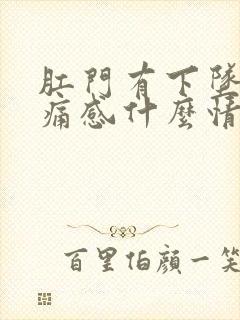 肛門有下墜
痛感什麼情
百里伯顏一笑